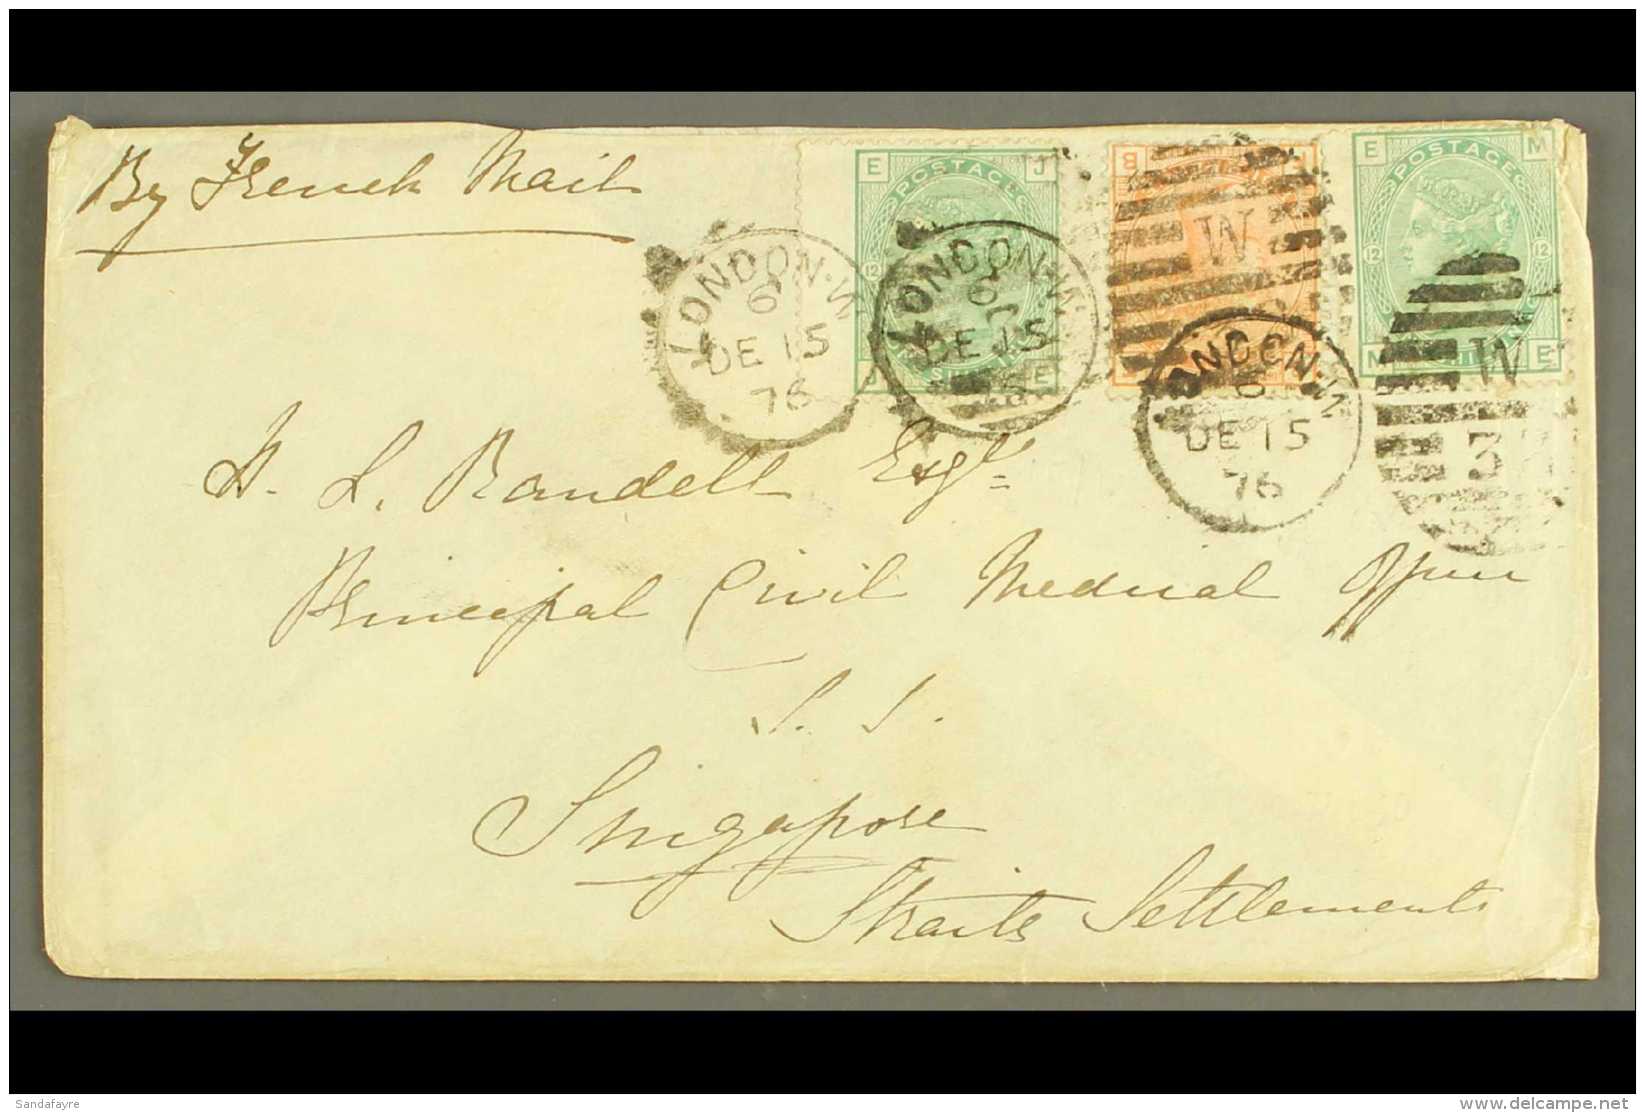 By French Mail
E POSTAGE J
12
J E
B
E POSTAGE M
12 12
M E
LONDON·W
6
DE 15
76
LONDON·W
6
DE 15
76
W
LONDON·W
6
DE 15
76
W
3
H. L. Randell Esqr.
Principal Civil Medical Officer
S. S.
Singapore
Straits Settlements
Sandafayre
delcampe.net